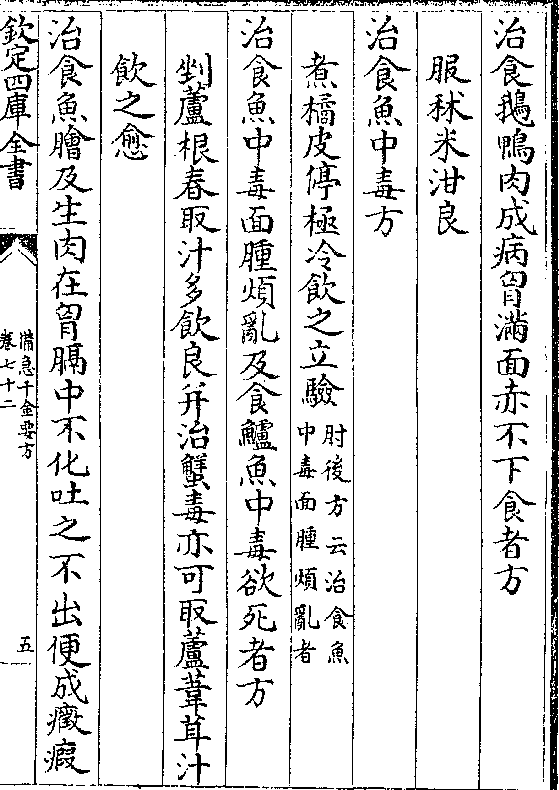 治食鵝鴨肉成病胷滿面赤不下食者方
服秫米泔良
治食魚中毒方
煮橘皮停極冷飲之立驗肘後方云治食魚
中毒面腫煩亂者
治食魚中毒面腫煩亂及食鱸魚中毒欲死者方
剉蘆根舂取汁多飲良并治蟹毒亦可取蘆葦茸汁
飲之愈
治食魚膾及生肉在胷膈中不化吐之不出便成癥瘕
欽定四庫全書
備急千金要方
卷七十二
五